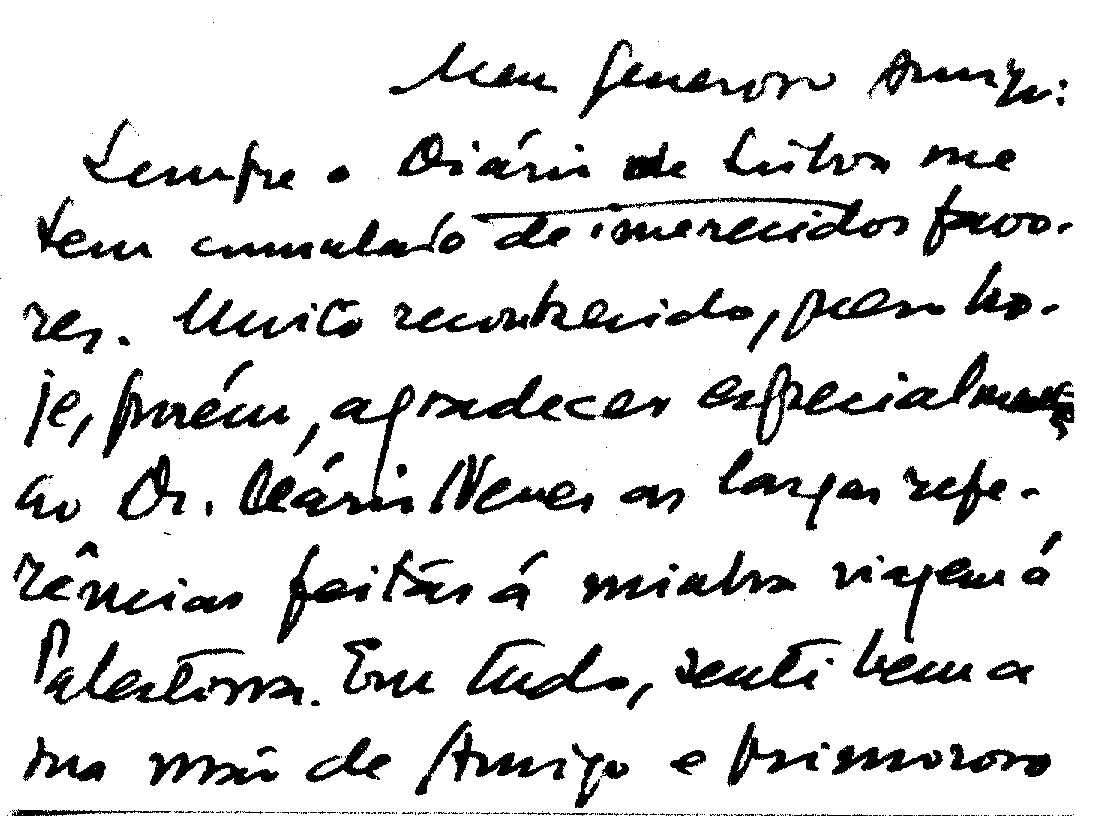 Meu generoso Amigo:
Sempre o Diário de Lisboa me
tem cumulado de imerecidos favo-
res. Muito reconhecido, quero ho-
je, porém, agradecer especialmente
ao Dr. Mário Neves as largas refe-
rências feitas á minha viagem á
Palestina. Em tudo, senti bem a
sua mão de Amigo e primoroso